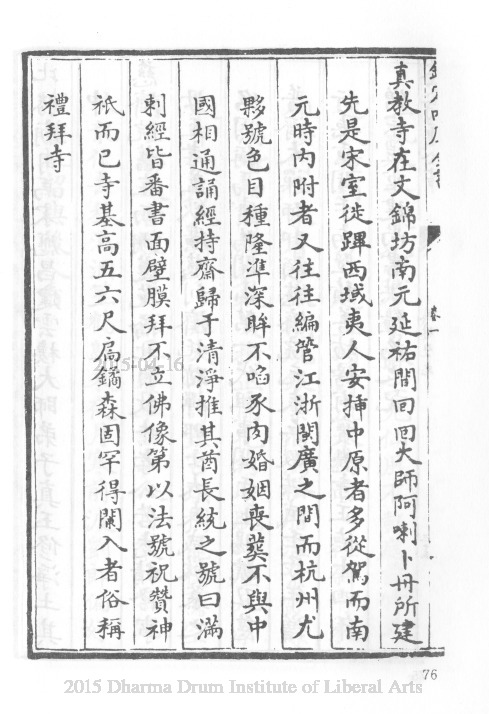 真教寺在文錦坊南元延祐間回回大師阿喇卜丹所建
先是宋室徙蹕西域夷人安揷中原者多從駕而南
元時内附者又往往編管江浙閩廣之間而杭州尤
夥號色目種隆準深眸不啗豕肉婚姻喪葬不與中
國相通誦經持齋歸于清淨推其酋長統之號曰滿
刺經皆番書面壁膜拜不立佛像第以法號祝贊神
祇而已寺基高五六尺扃鐍森固罕得闌入者俗稱
禮拜寺
76
2015-04-16
2015 Dharma Drum Institute of Liberal Arts